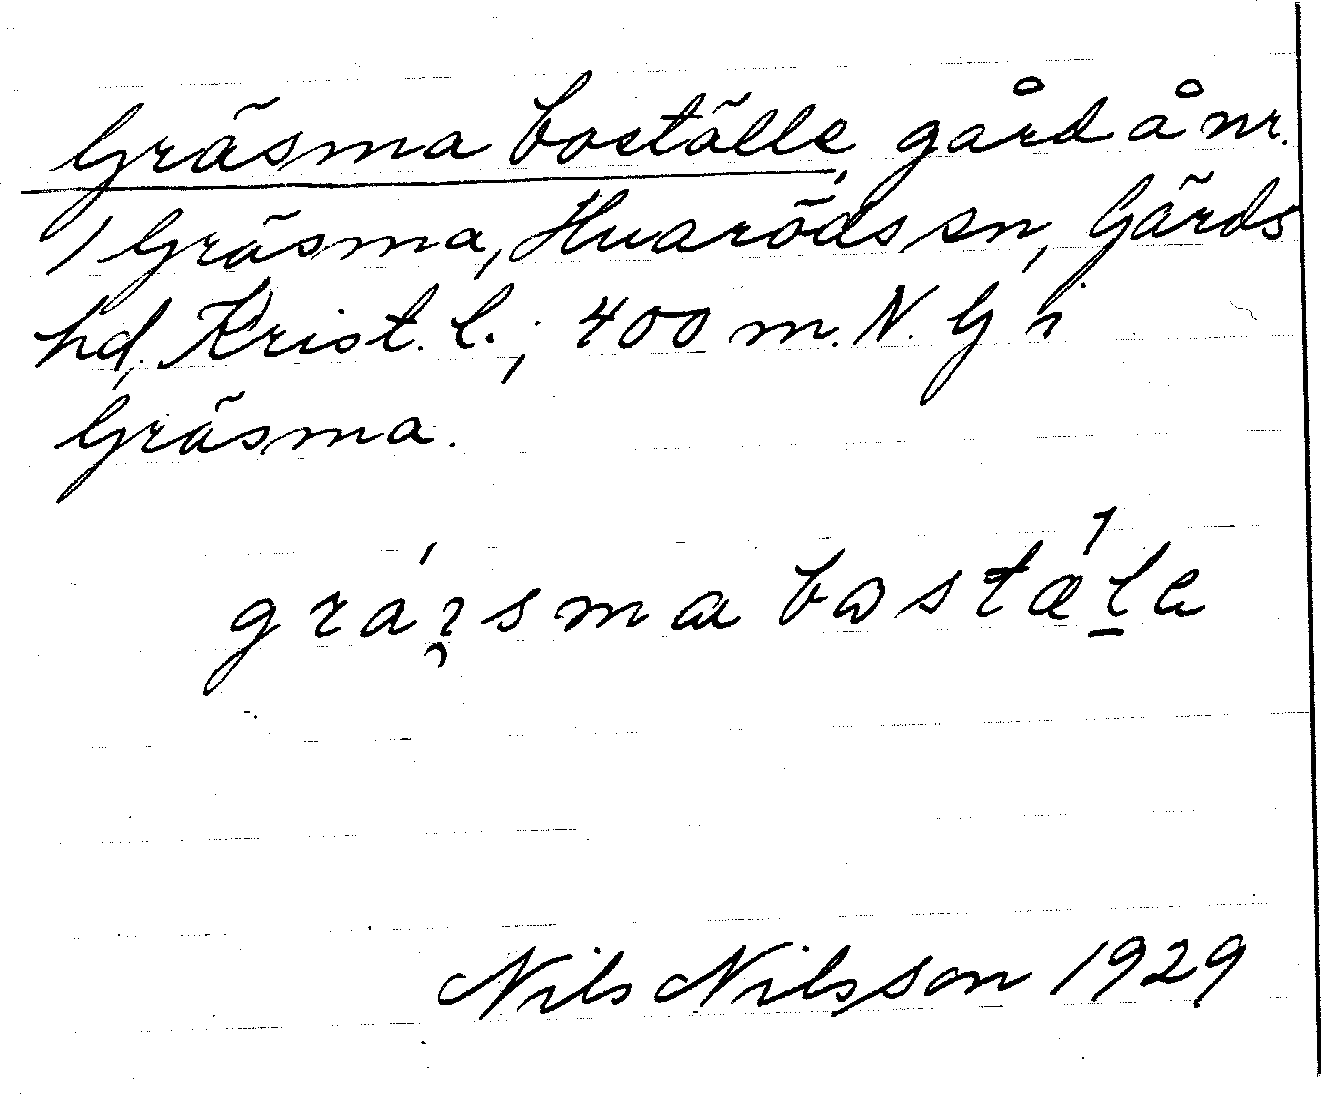 Gräsma boställe, gård å nr.
1 Gräsma, Huaröds sn, Gärds
hd, Krist. l.; 400 m. N. G i
Gräsma.
bostäla
Nils Nilsson 1929